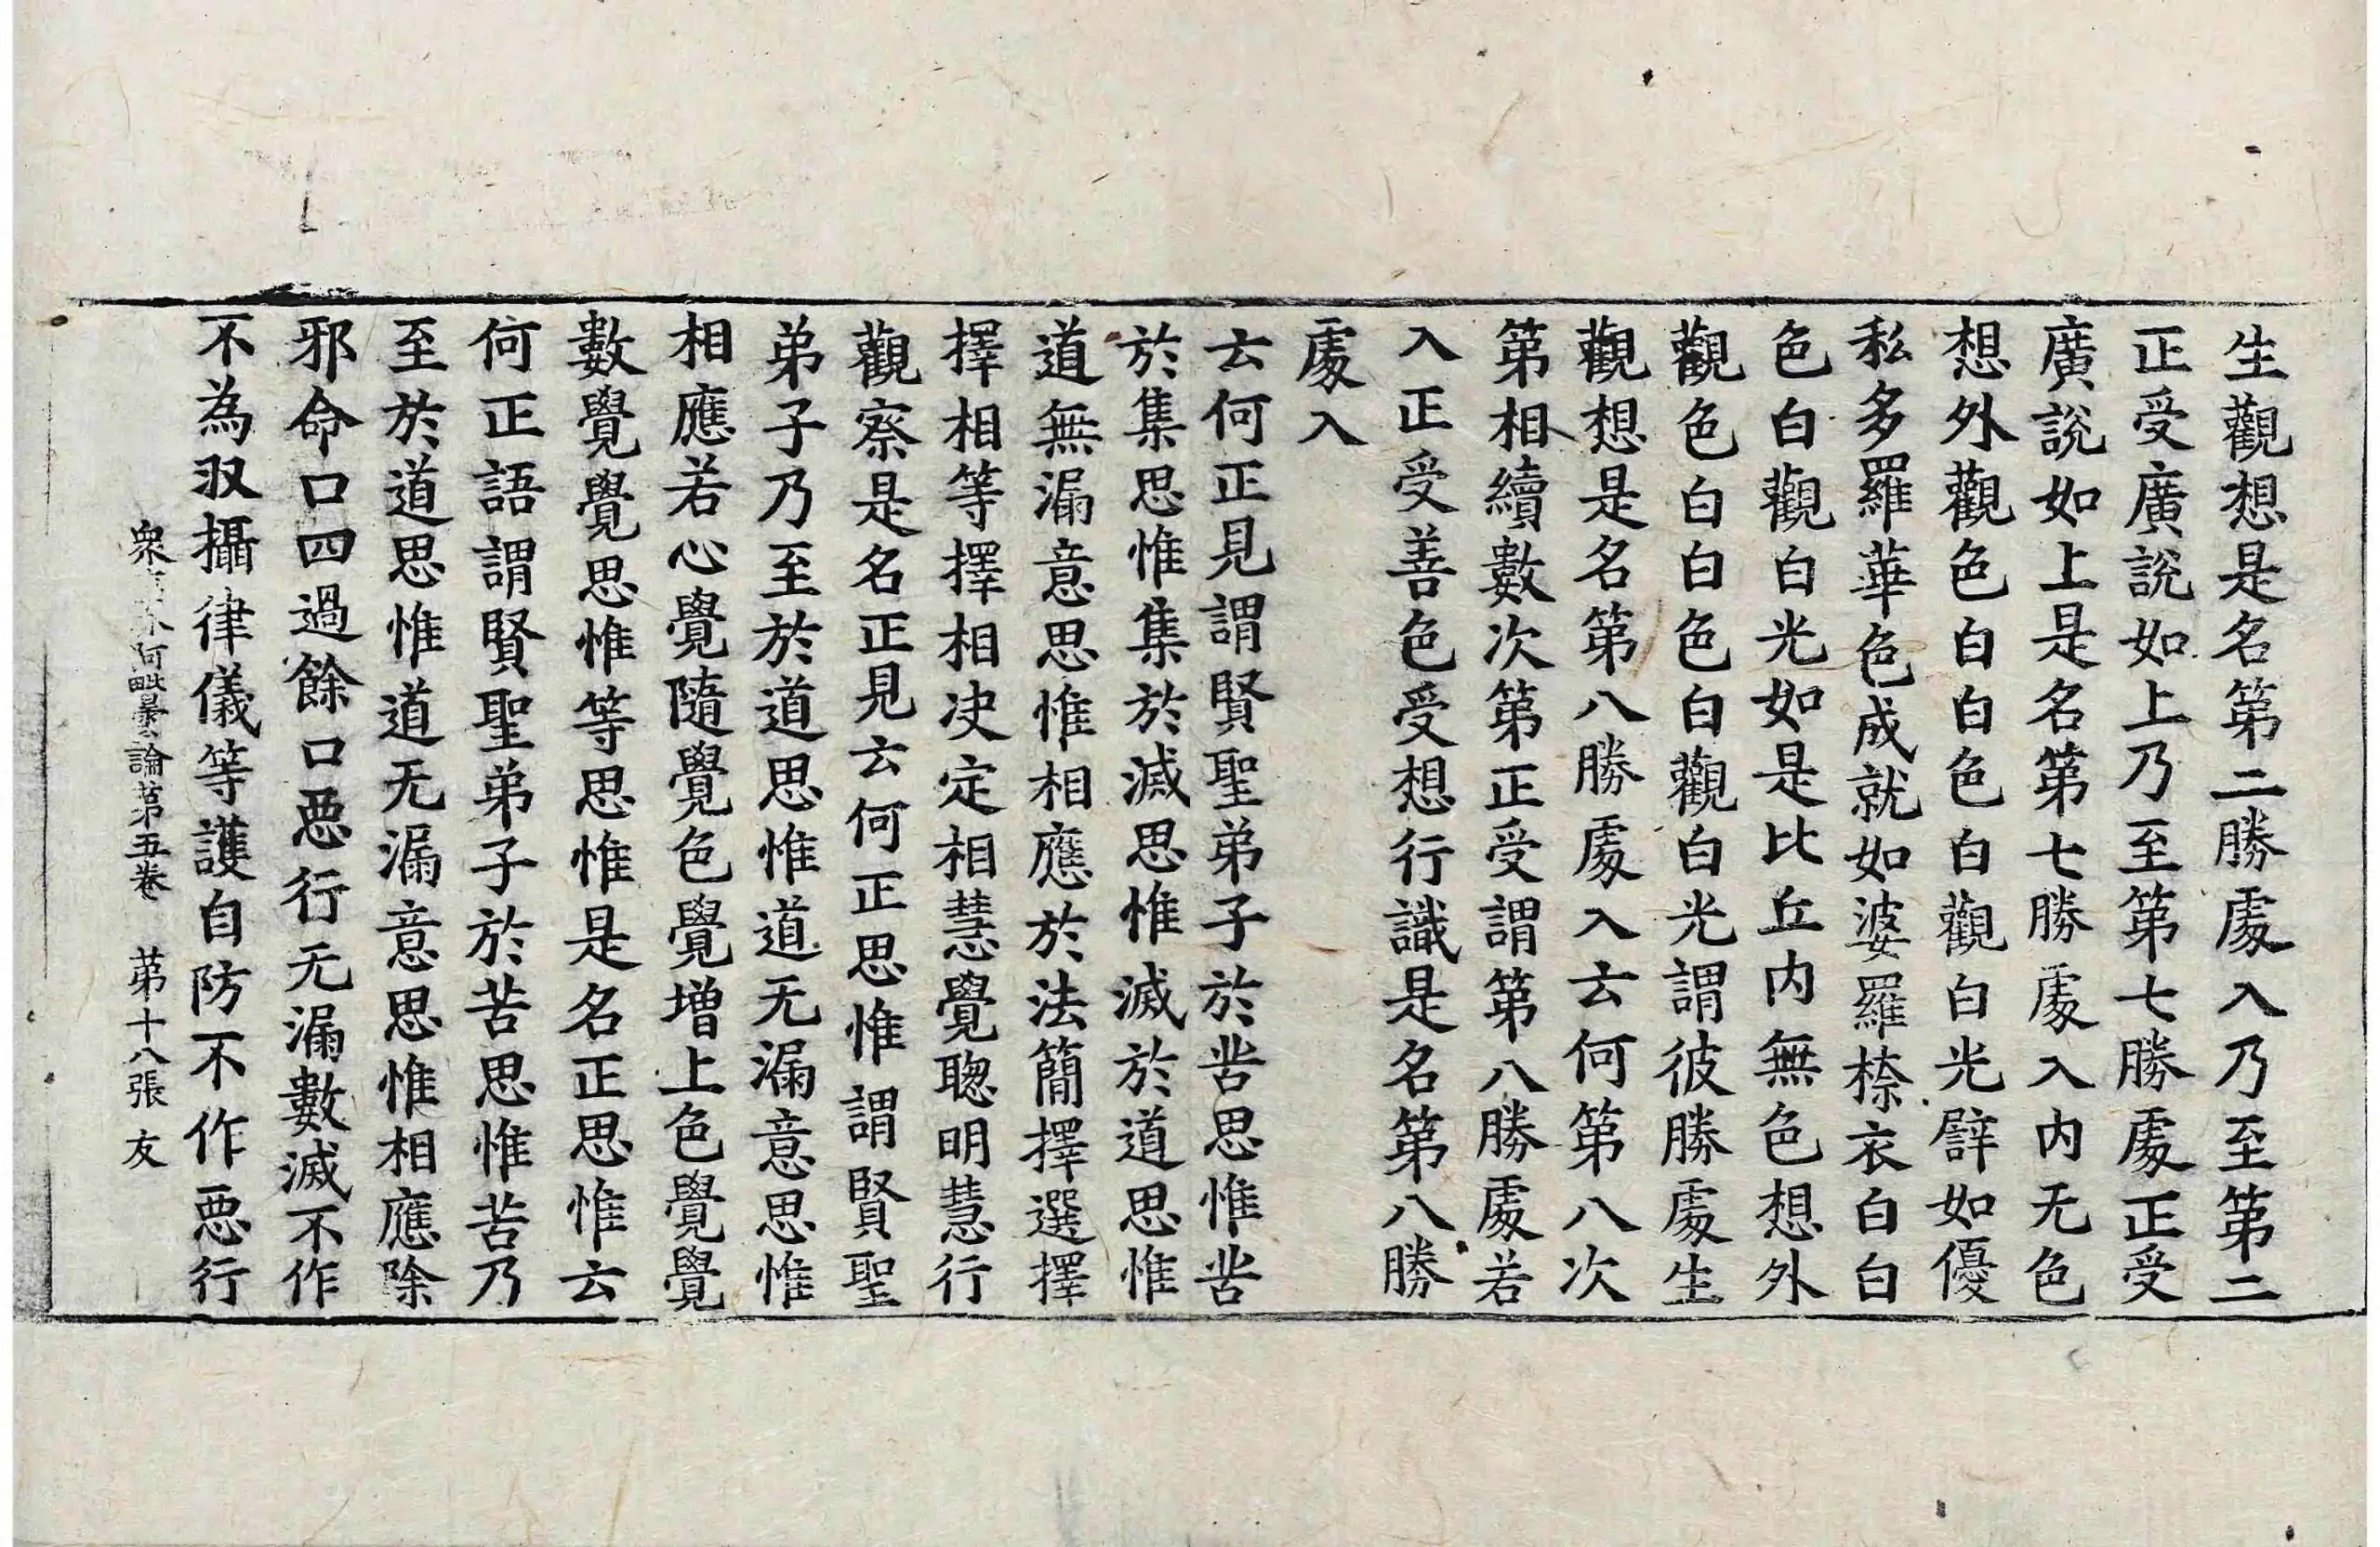 生觀想是名第二勝處入乃至第二
正受廣說如上乃至第七勝處正受
廣說如上是名第七勝處入內无色
想外觀色白白色白觀白光譬如優
私多羅華色成就如婆羅㮈衣白白
色白觀白光如是比丘內無色想外
觀色白白色白觀白光謂彼勝處生
觀想是名第八勝處入云何第八次
第相續數次第正受謂第八勝處若
入正受善色受想行識是名第八勝
處入
云何正見謂賢聖弟子於苦思惟苦
於集思惟集於滅思惟滅於道思惟
道無漏意思惟相應於法簡擇選擇
擇相等擇相决定相慧覺聰明慧行
觀察是名正見云何正思惟謂賢聖
弟子乃至於道思惟道无漏意思惟
相應若心覺隨覺色覺增上色覺覺
數覺覺思惟等思惟是名正思惟云
何正語謂賢聖弟子於苦思惟苦乃
至於道思惟道无漏意思惟相應除
邪命口四過餘口惡行无漏數滅不作
不為㧞攝律儀等護自防不作惡行
衆阿毗曇論第五卷 第十八張 友